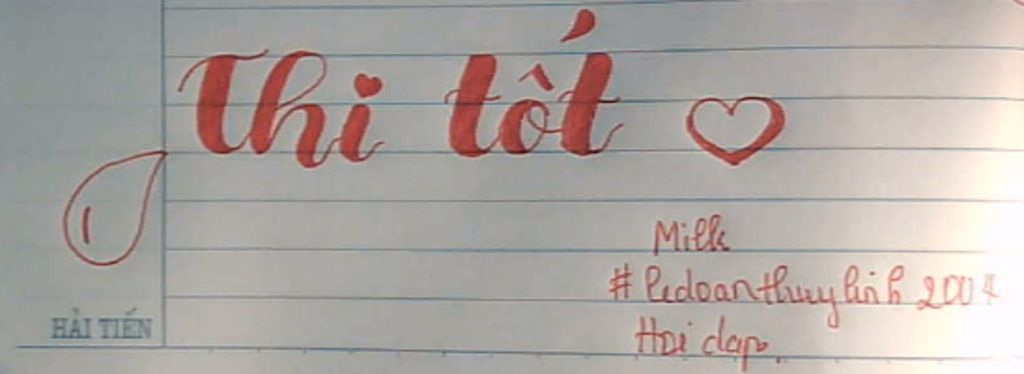 Thi tốt
1
Milk
#ledoanthuylinh2004
HẢI TIẾN
Hoi dap